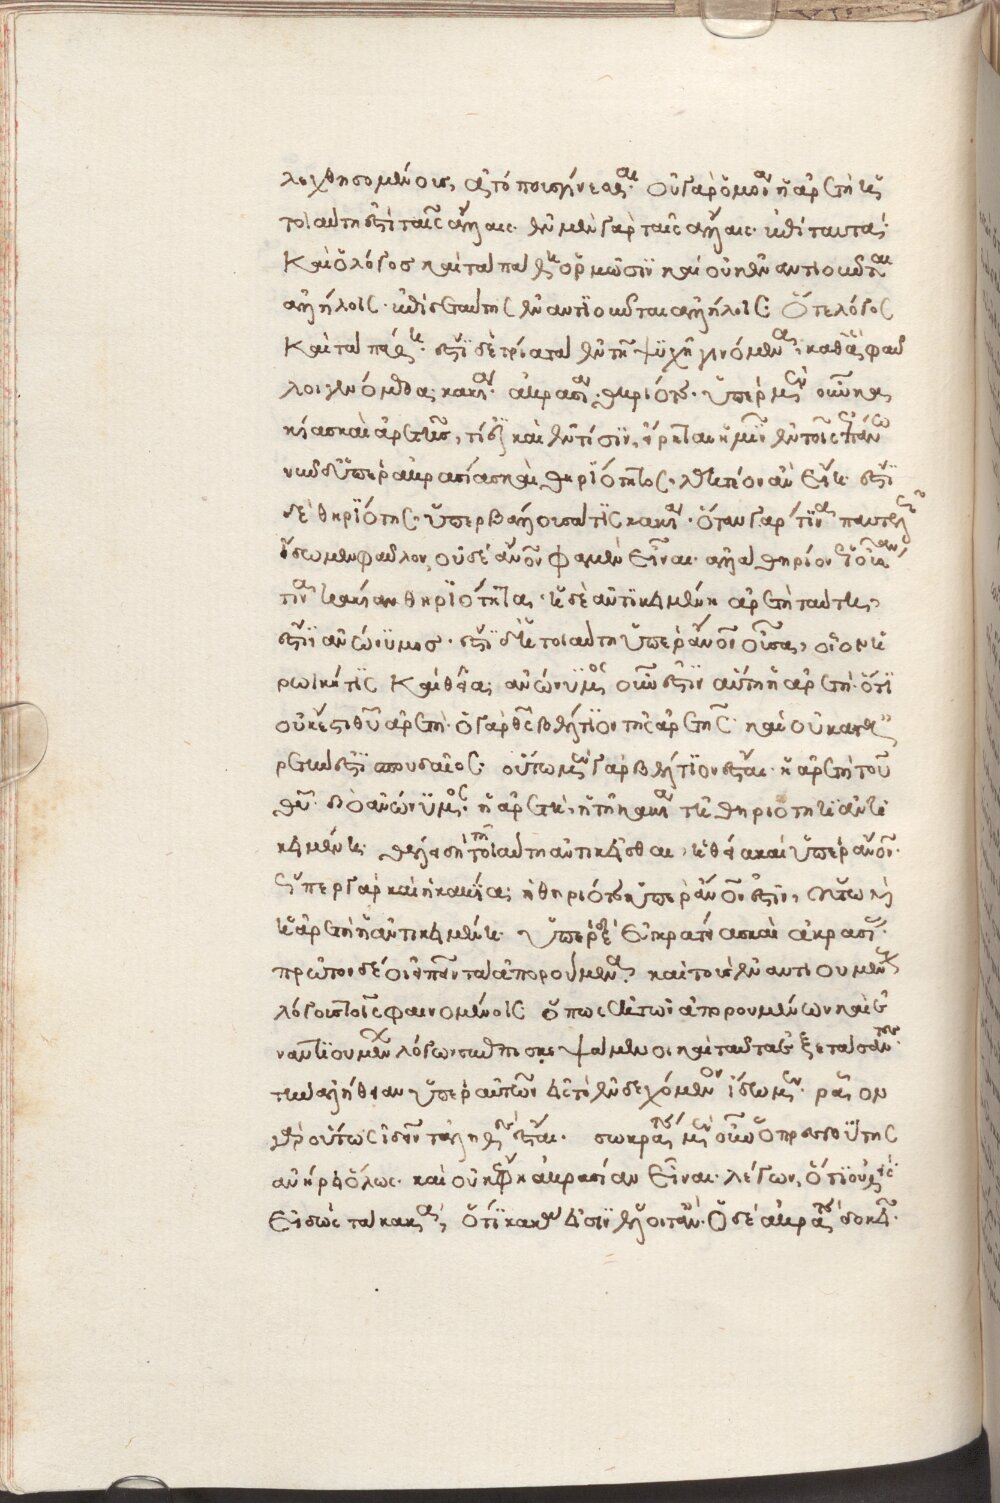 λεχθησομένοις, ἄτοπος γίνεσθαι. οὐ γὰρ ὁμοία ἡ ἀρετὴ ἡ
τοιαύτη ἐστὶ ταῖς ἄλλαις. ἐν μὲν γὰρ ταῖς ἄλλαις ἐπὶ ταυτὰ
καὶ ὁ λόγος καὶ τὰ πάθη ὁρμῶσιν καὶ οὐκ ἐναντιοῦνται
ἀλλήλοις. ἐπὶ δὲ ταύτης ἐναντιοῦνται ἀλλήλοις ὅ τε λόγος
καὶ τὰ πάθη. ἔστι δὲ τρία τὰ ἐν τῇ ψυχῇ γινόμενα, καθ' ἃ φαῦ
λοι λεγόμεθα, κακία. ἀκρασία. θηριότης. ὑπὲρ μὲν οὖν κα
κίας καὶ ἀρετῆς, τί ἐστι καὶ ἐν τίσιν, εἴρηται ἡμῖν ἐν τοῖς ἐπάνω
νῦν δὲ ὑπὲρ ἀκρασίας καὶ θηριότητος, λεκτέον ἂν εἴη. ἔστι
δὲ θηριότης, ὑπερβάλλουσά τις κακία. ὅταν γάρ τινα παντελῶς
ἴδωμεν φαῦλον, οὐδὲ ἄνθρωπον φαμὲν εἶναι. ἀλλὰ θηρίον ὡς οὖσαν
τινα κακίαν θηριότητα. ἡ δὲ ἀντικειμένη ἀρετὴ ταύτῃ,
ἐστὶν ἀνώνυμος. ἔστι δὲ ἡ τοιαύτη ὑπὲρ ἄνθρωπον οὖσα, οἷον ἡ
ρωικὴ τὶς καὶ θεία, ἀνώνυμος οὖν ἐστὶν αὕτη ἡ ἀρετή. ὅτι
οὐκ ἔστι θεοῦ ἀρετή. ὁ γὰρ θεὸς βελτίον τῆς ἀρετῆς καὶ οὐ κατ' ἀ
ρετήν ἐστι σπουδαῖος. οὕτω μὲν γὰρ βέλτιον ἔσται ἡ ἀρετὴ τοῦ
θεοῦ. διὸ ἀνώνυμος ἡ ἀρετὴ, ἡ τῇ κακίᾳ τῇ θηριότητι ἀντι
κειμένη. θέλει δὲ τῇ τοιαύτῃ ἀντικεῖσθαι ἡ θεία καὶ ὑπὲρ ἄνθρωπον.
ὥσπερ γὰρ καὶ ἡ κακία, ἡ θηριότης ὑπὲρ ἄνθρωπον ἐστὶν, οὕτω καὶ
ἡ ἀρετὴ ἡ ἀντικειμένη. ὑπὲρ δὲ ἐγκρατείας καὶ ἀκρασίας.
πρῶτον δέοι εἰπεῖν τὰ ἀπορούμενα. καὶ τοὺς ἐναντιουμένους
λόγους τοῖς φαινομένοις ὅπως ἐκ τῶν ἀπορουμένων καὶ ἐ
ναντιουμένων λόγων συνεπισκεψάμενοι καὶ ταῦτα ἐξετάσαντες.
τὴν ἀλήθειαν ὑπὲρ αὐτῶν εἰς τὸ ἐνδεχόμενον ἴδωμεν. ῥᾷον
γὰρ οὕτως ἰδεῖν τἀληθὲς ἔσται. σωκράτης μὲν οὖν ὁ πρεσβύτης
ἀνῄρει ὅλως. καὶ οὐκ ἔφη ἀκρασίαν εἶναι. λέγων, ὅτι οὐθεὶς
εἰδὼς τὰ κακὰ, ὅτι κακὰ εἰσὶν ἕλοιτ' ἄν. ὁ δὲ ἀκρατὴς δοκεῖ.